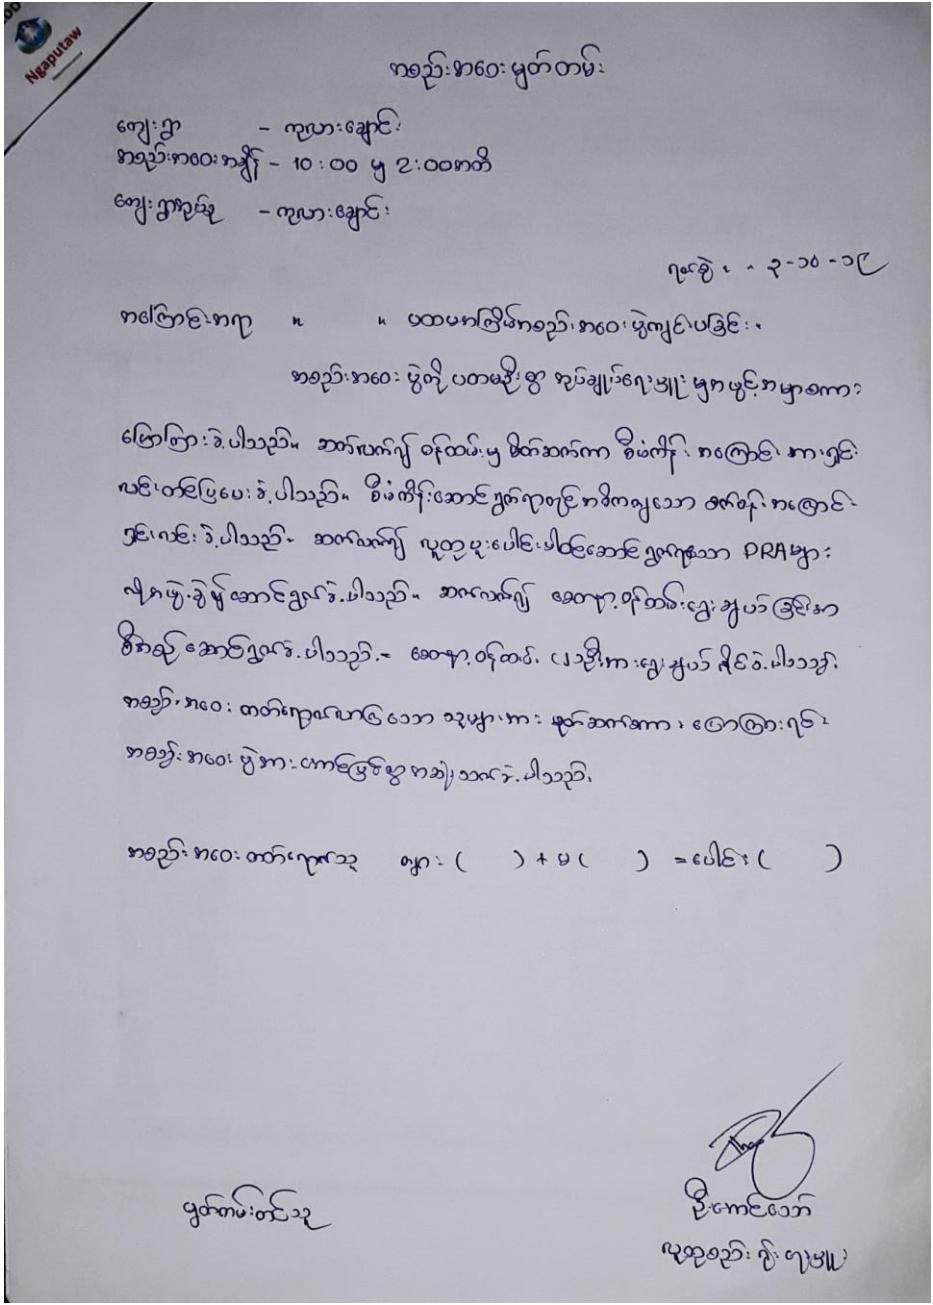 Ngaputaw
အစည်းအဝေးမှတ်တမ်း
ကျေးရွာ - ကုလားချောင်း
အစည်းအဝေးအချိန် - 10:00 မှ 2:00 အထိ
ကျေးရွာအုပ်စု - ကုလားချောင်း
ရက်စွဲ ။ - ၃-၁၀-၁၉
အကြောင်းအရာ ။ ။ ပထမအကြိမ်အစည်းအဝေးပွဲကျင်းပခြင်း။
အစည်းအဝေးပွဲကို ပထမဦးစွာ အုပ်ချုပ်ရေးမှူးမှအဖွင့်အမှာစကား
ပြောကြားခဲ့ပါသည်။ ဆက်လက်၍ ဝန်ထမ်းမှ မိတ်ဆက်ကာ စီမံကိန်းအကြောင်းအားရှင်း
လင်းတင်ပြပေးခဲ့ပါသည်။ စီမံကိန်းဆောင်ရွက်ရာတွင်အဓိကကျသော
ရှင်းလင်းခဲ့ပါသည်။ ဆက်လက်၍ လူထုပူးပေါင်းပါဝင်ဆောင်ရွက်ရသော PRA များ
ဆောင်ရွက်ခဲ့ပါသည်။ ဆက်လက်၍ စေတနာ့ဝန်ထမ်းရွေးချယ်ခြင်းအား
ဆောင်ရွက်ခဲ့ပါသည်။ စေတနာ့ဝန်ထမ်း ဦးအားရွေးချယ်နိုင်ခဲ့ပါသည်။
အစည်းအဝေးတက်ရောက်လာကြသော သူများအား နှုတ်ဆက်စကားပြောကြားရင်း
အစည်းအဝေးပွဲအားအောင်မြင်စွာအဆုံးသတ်ခဲ့ပါသည်။
အစည်းအဝေးတက်ရောက်သူ ကျား ( ) + မ ( ) = ပေါင်း ( )
မှတ်တမ်းတင်သူ
ဦးအောင်ဇော်
လူထုစည်းရုံးရေးမှူး